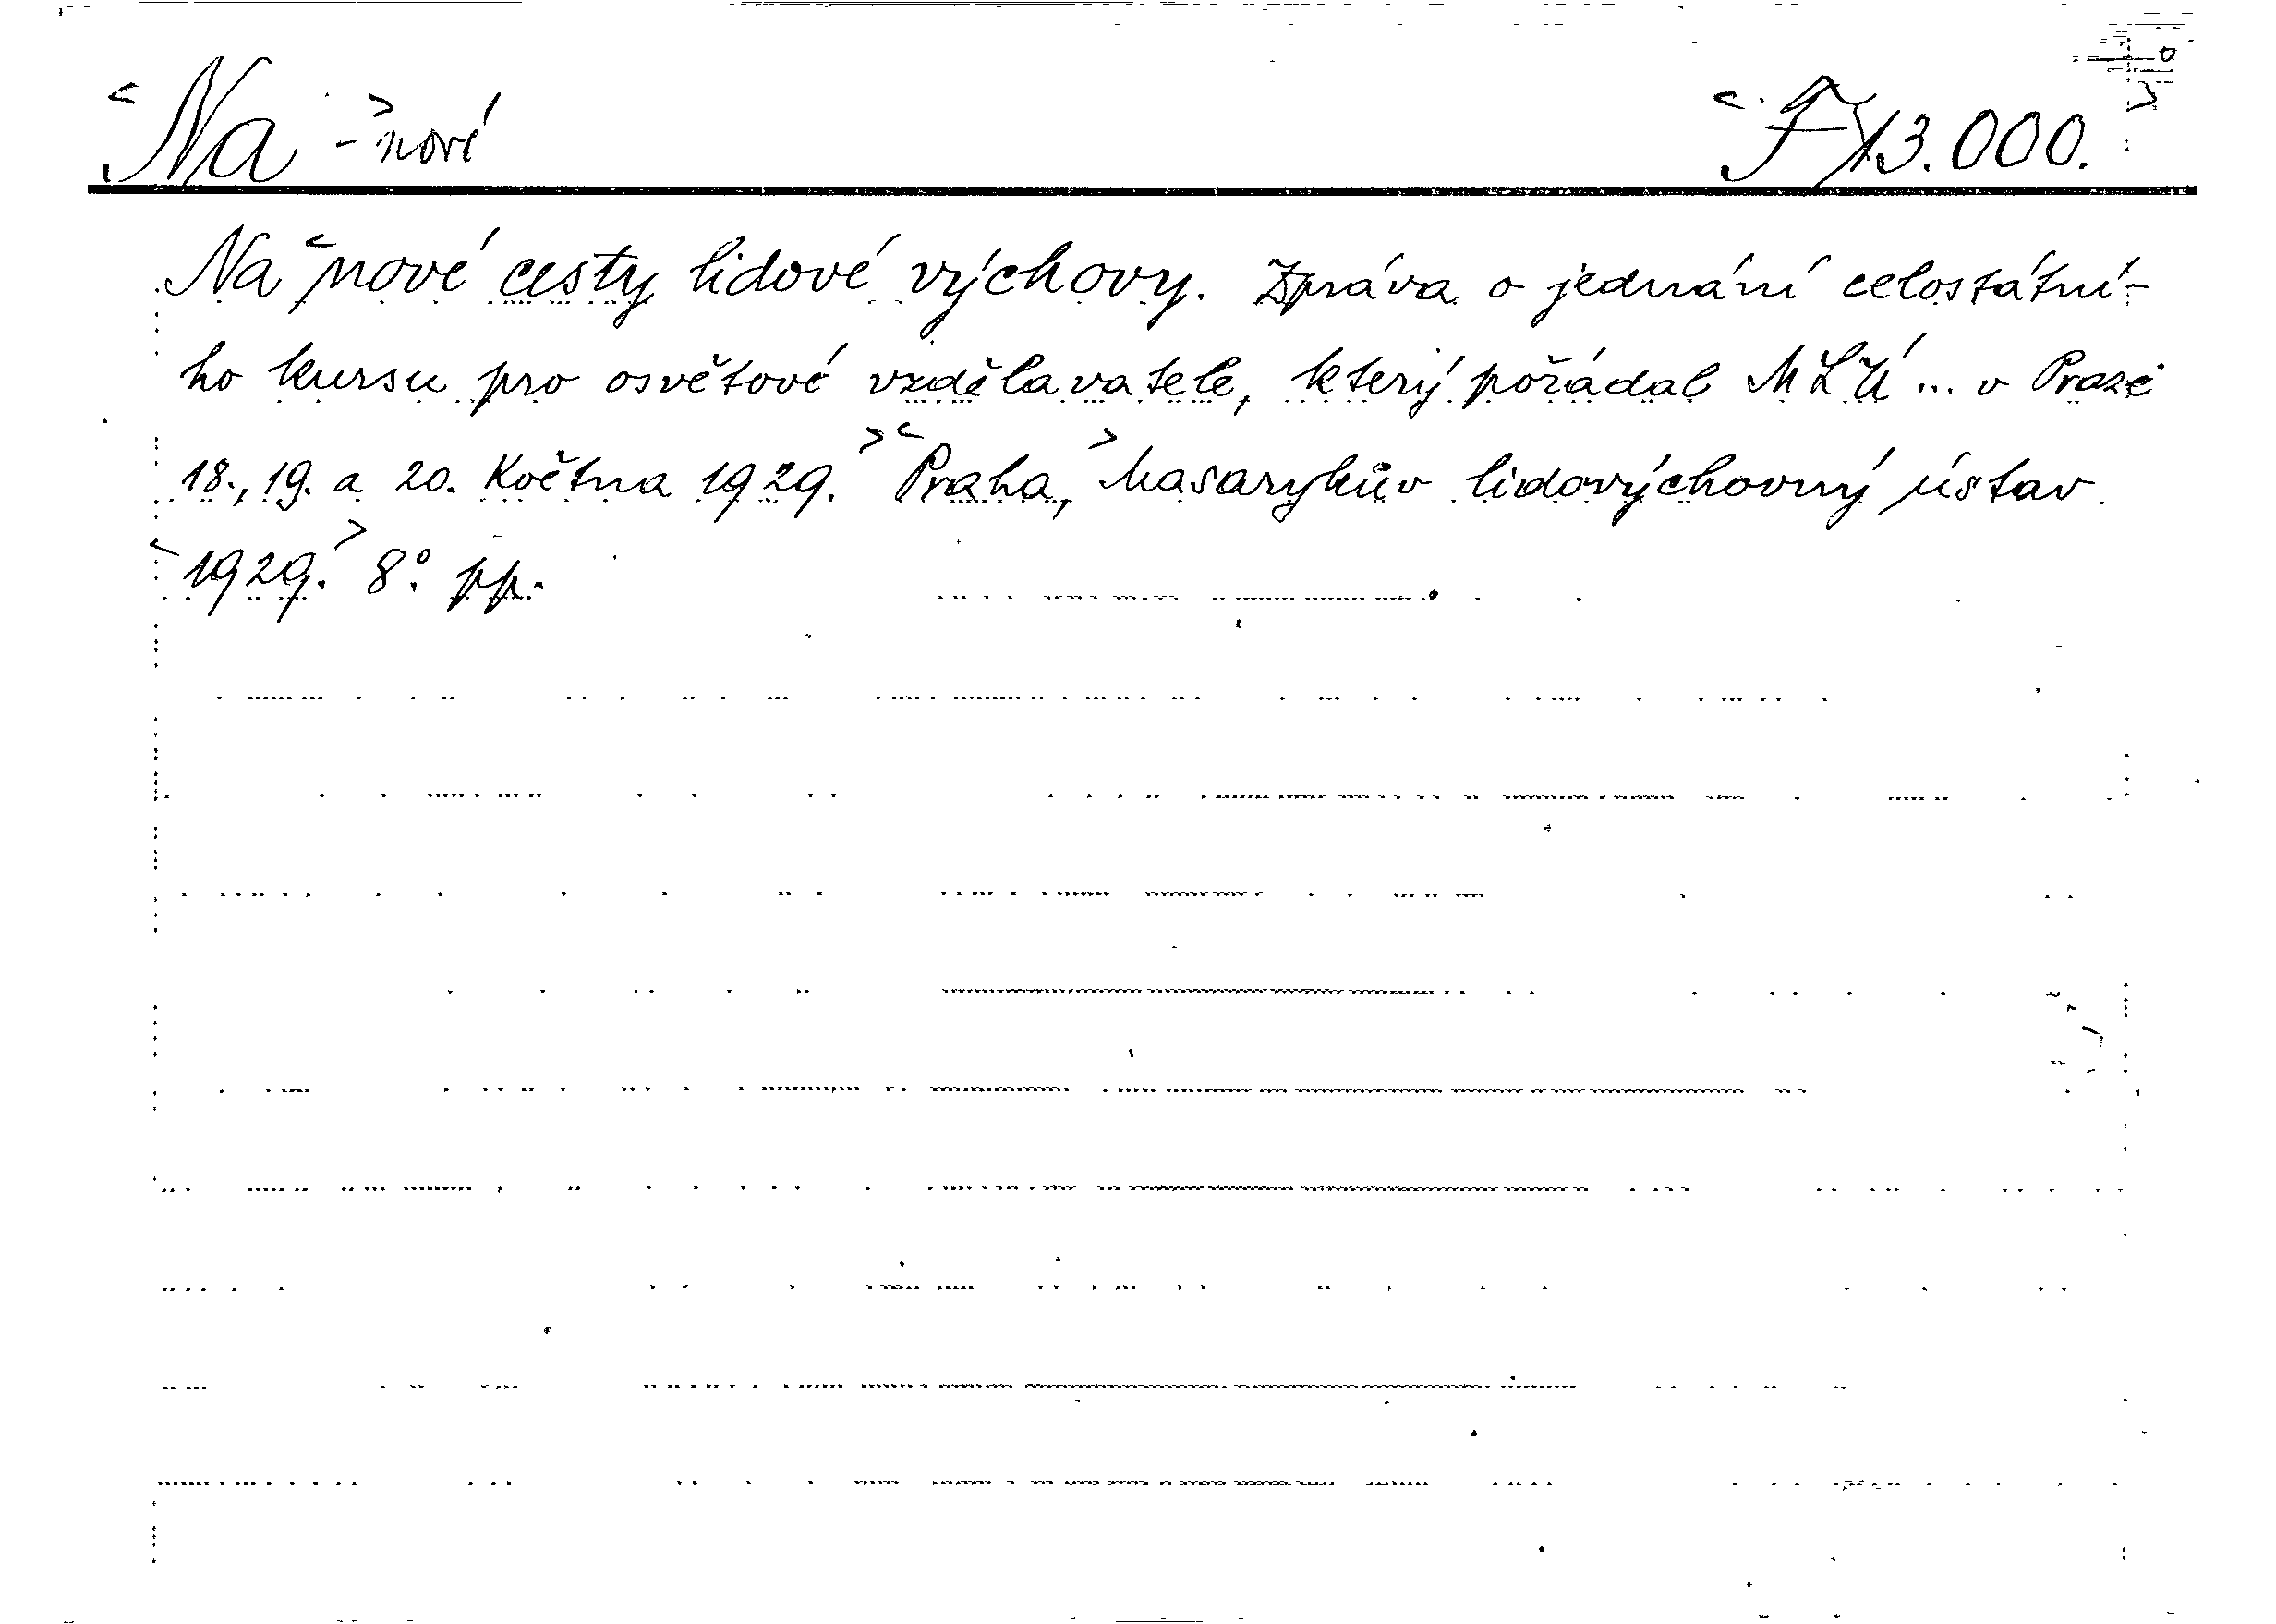 Na - nové F 13.000.
Na nové cesty lidové výchovy. Zpráva o jednání celostátní-
ho kursu pro osvětové vzdělavatele, který pořádal MLÚ ... v Praze
18., 19. a 20. května 1929. Praha, Masarykův lidovýchovný ústav.
1929. 8°. pp.